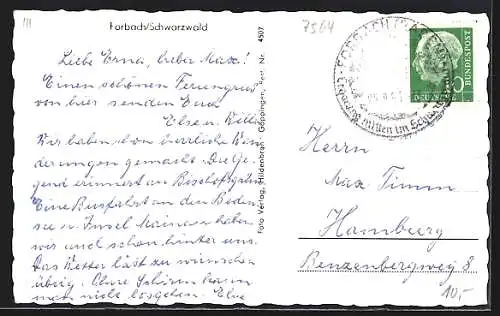 Forbach/Schwarzwald
Liebe Erna, lieber Max!
Einen schönen Feriengruß
von hier senden Euch
Else u. Willi
Wir haben schon herrliche Wan-
derungen gemacht. Die Ge-
gend erinnert an Bischofsgrün.
Eine Busfahrt an den Boden-
see u. Insel Mainau haben
wir auch schon hinter uns.
Das Wetter läßt zu wünschen
übrig. Ohne Schirm kann
man nicht losgehen. Else
Foto Verlag, Hildenbrand, Göppingen, Best. Nr. 4507
7564
FORBACH
DEUTSCHE
BUNDESPOST
Herrn
Max Timm
Hamburg
Benzenbergweg 8
10,-